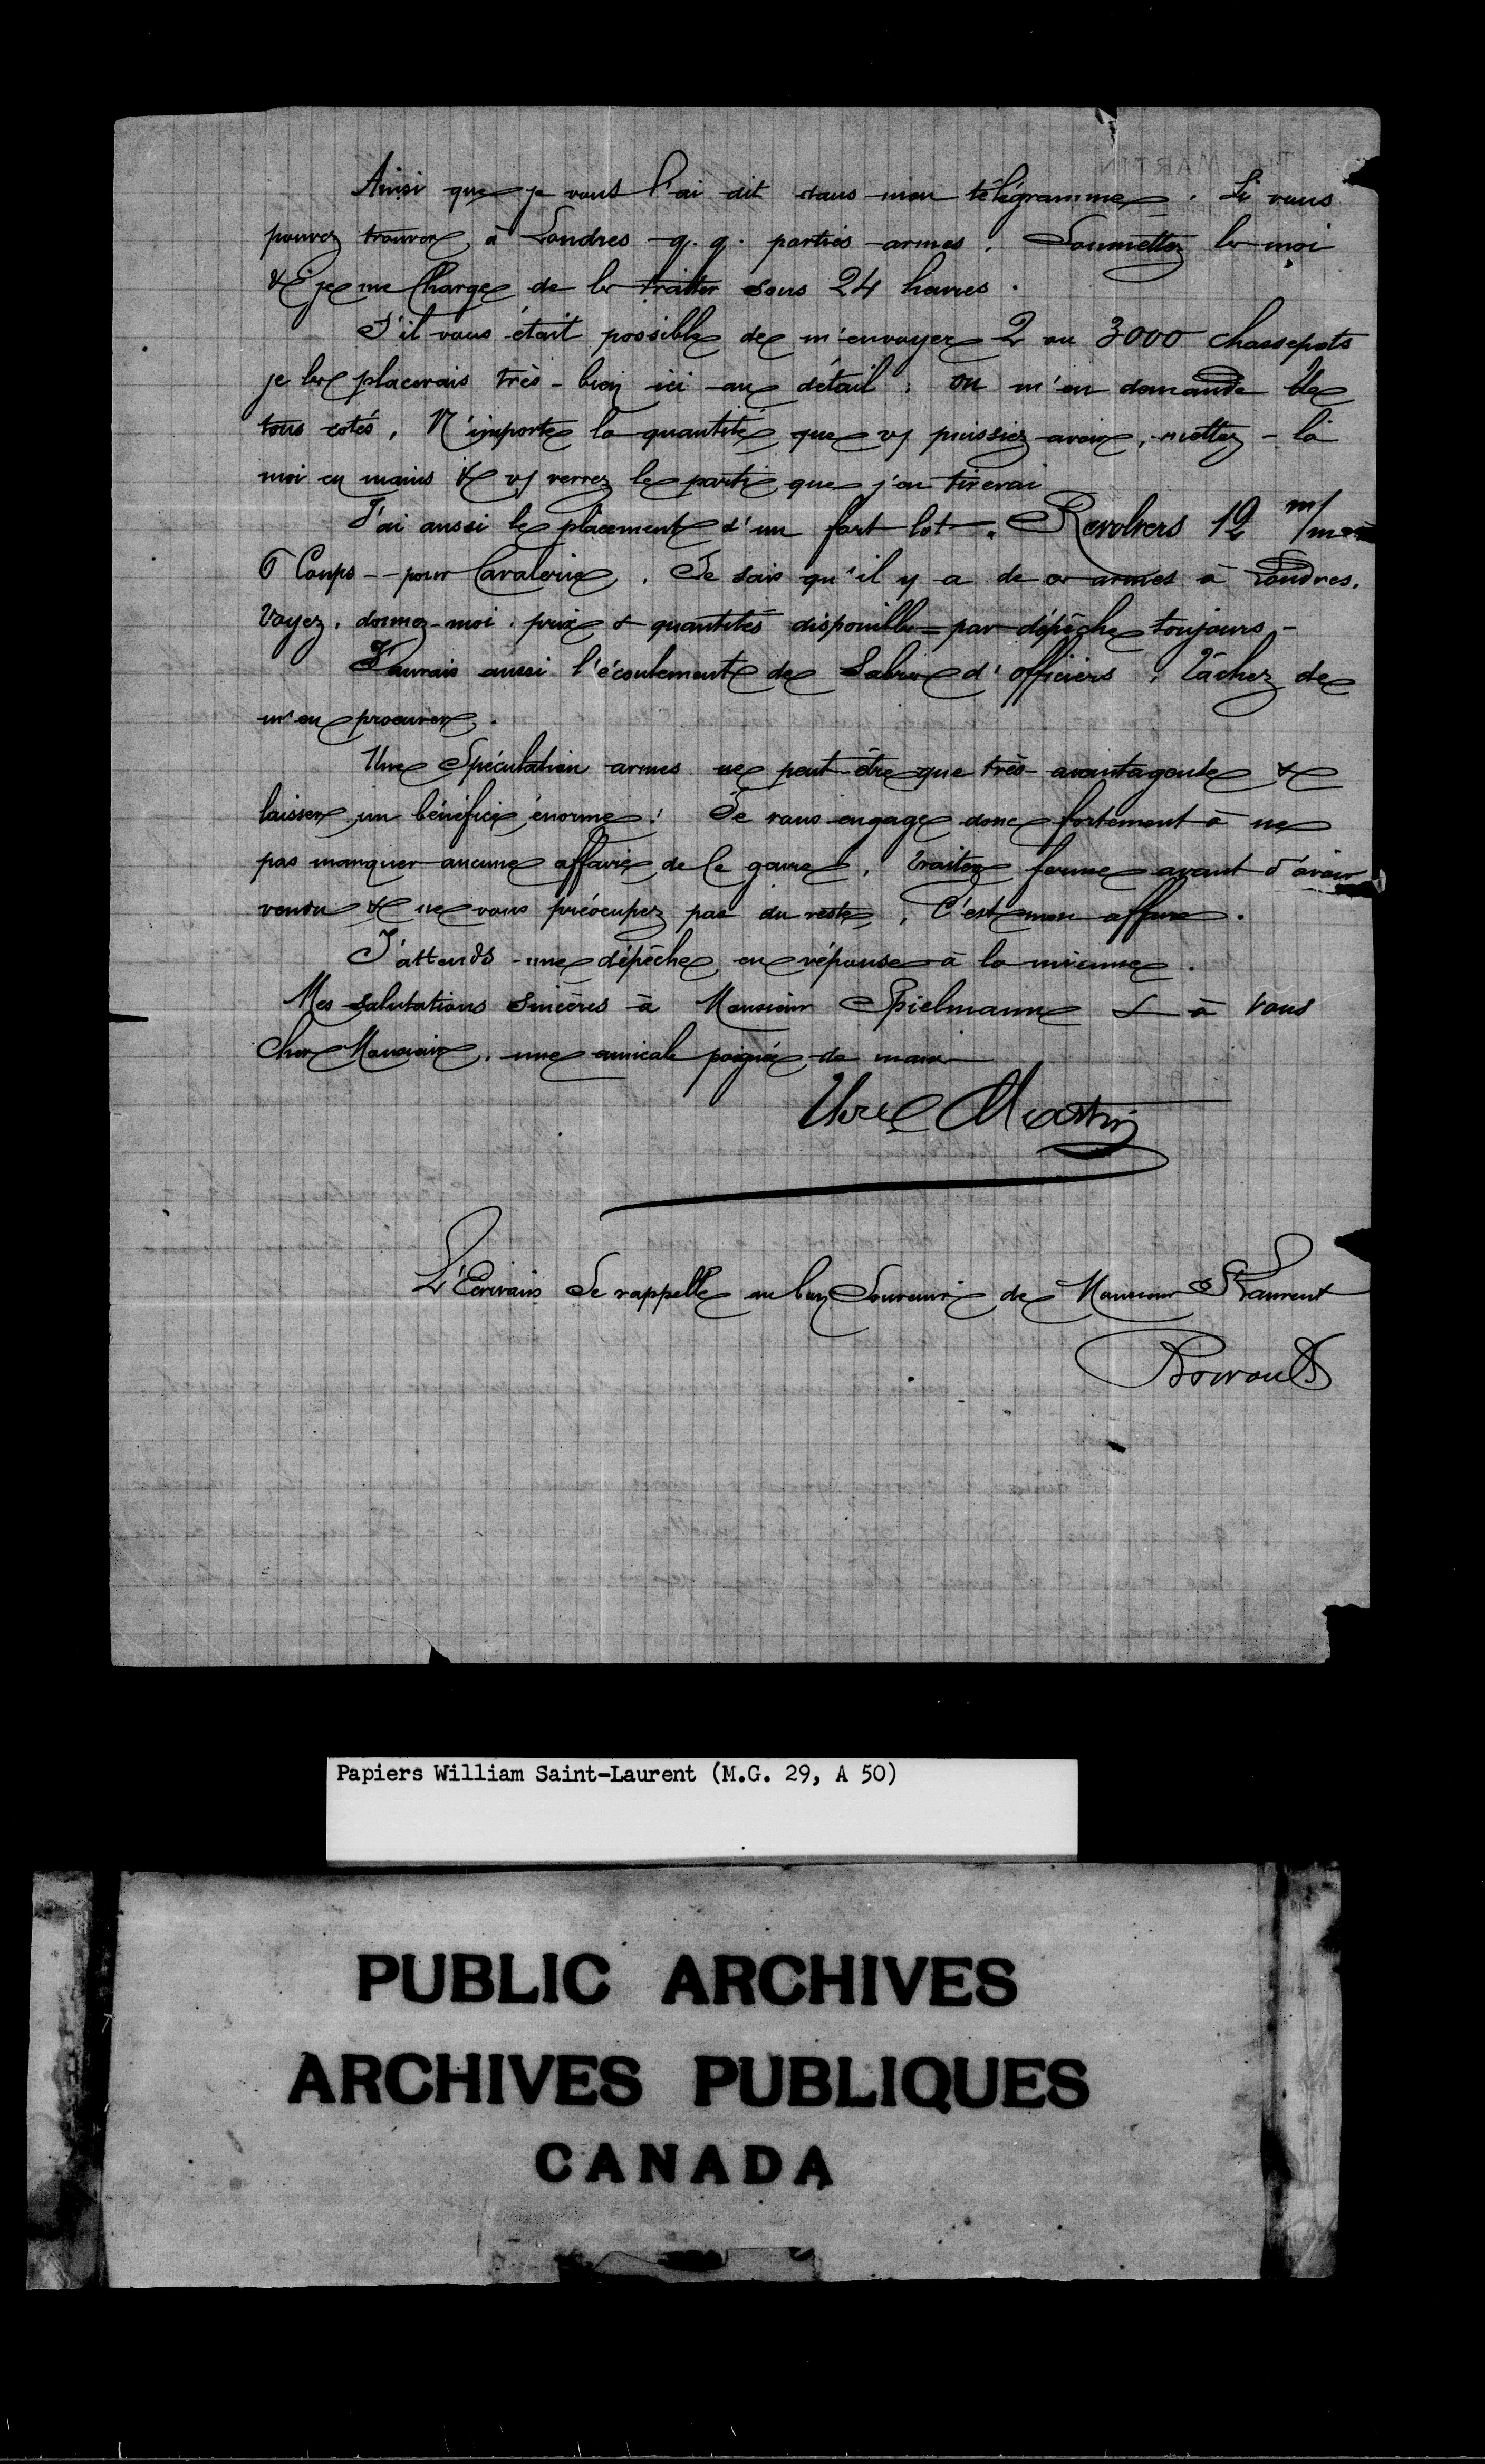 Ainsi que je vous l'ai dit dans mon télégramme. Si vous
pouvez trouver, à Londres q.q. parties armes. Soumettez les moi
& je me charge de les traiter sous 24 heures.
S'il vous était possible de m'envoyer 2 ou 3000 chassepots
je les placerais très-bien ici au détail; on m'en demande de
tous cotés. N'importe la quantité que vs puissiez avoir, mettez-la
moi en mains & vs verrez le parti que j'en tirerai
J'ai aussi le placement d'un fort lot. Revolvers 12 m/m
6 Coups -- pour Cavalerie. Je sais qu'il y a de ces armes à Londres.
Voyez, donnez-moi prix & quantités disponibles = par dépêche toujours -
J'aurais aussi l'écoulement de Sabres d'officiers; tâchez de
m'en procurer.
Une Spéculation armes ne peut être que très-avantageuse &
laisser un bénéfice énorme! Je vous engage donc fortement à ne
pas manquer aucune affaire de ce genre. Traitez ferme avant d'avoir
vendu & ne vous préocupez pas du reste, C'est mon affaire.
J'attends une dépêche en réponse à la mienne.
Mes salutations sincères à Monsieur Spielmann & à vous
Cher Monsieur, une amicale poignée de main
Martin
L'Ecrivain Se rappelle au bon Souvenir de Monsieur St Laurent
Papiers William Saint-Laurent (M.G. 29, A 50)
PUBLIC ARCHIVES
ARCHIVES PUBLIQUES
CANADA